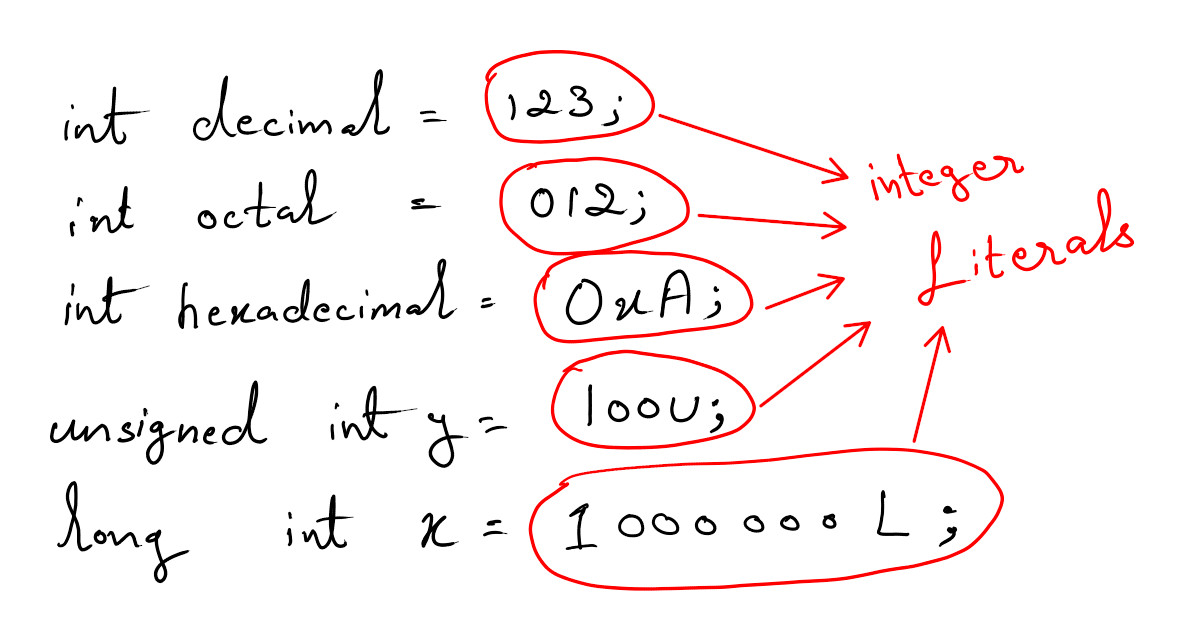 int decimal = 123;
int octal = 012;
int hexadecimal = 0xA;
unsigned int y = 100U;
long int x = 1000000L;
integer
Literals